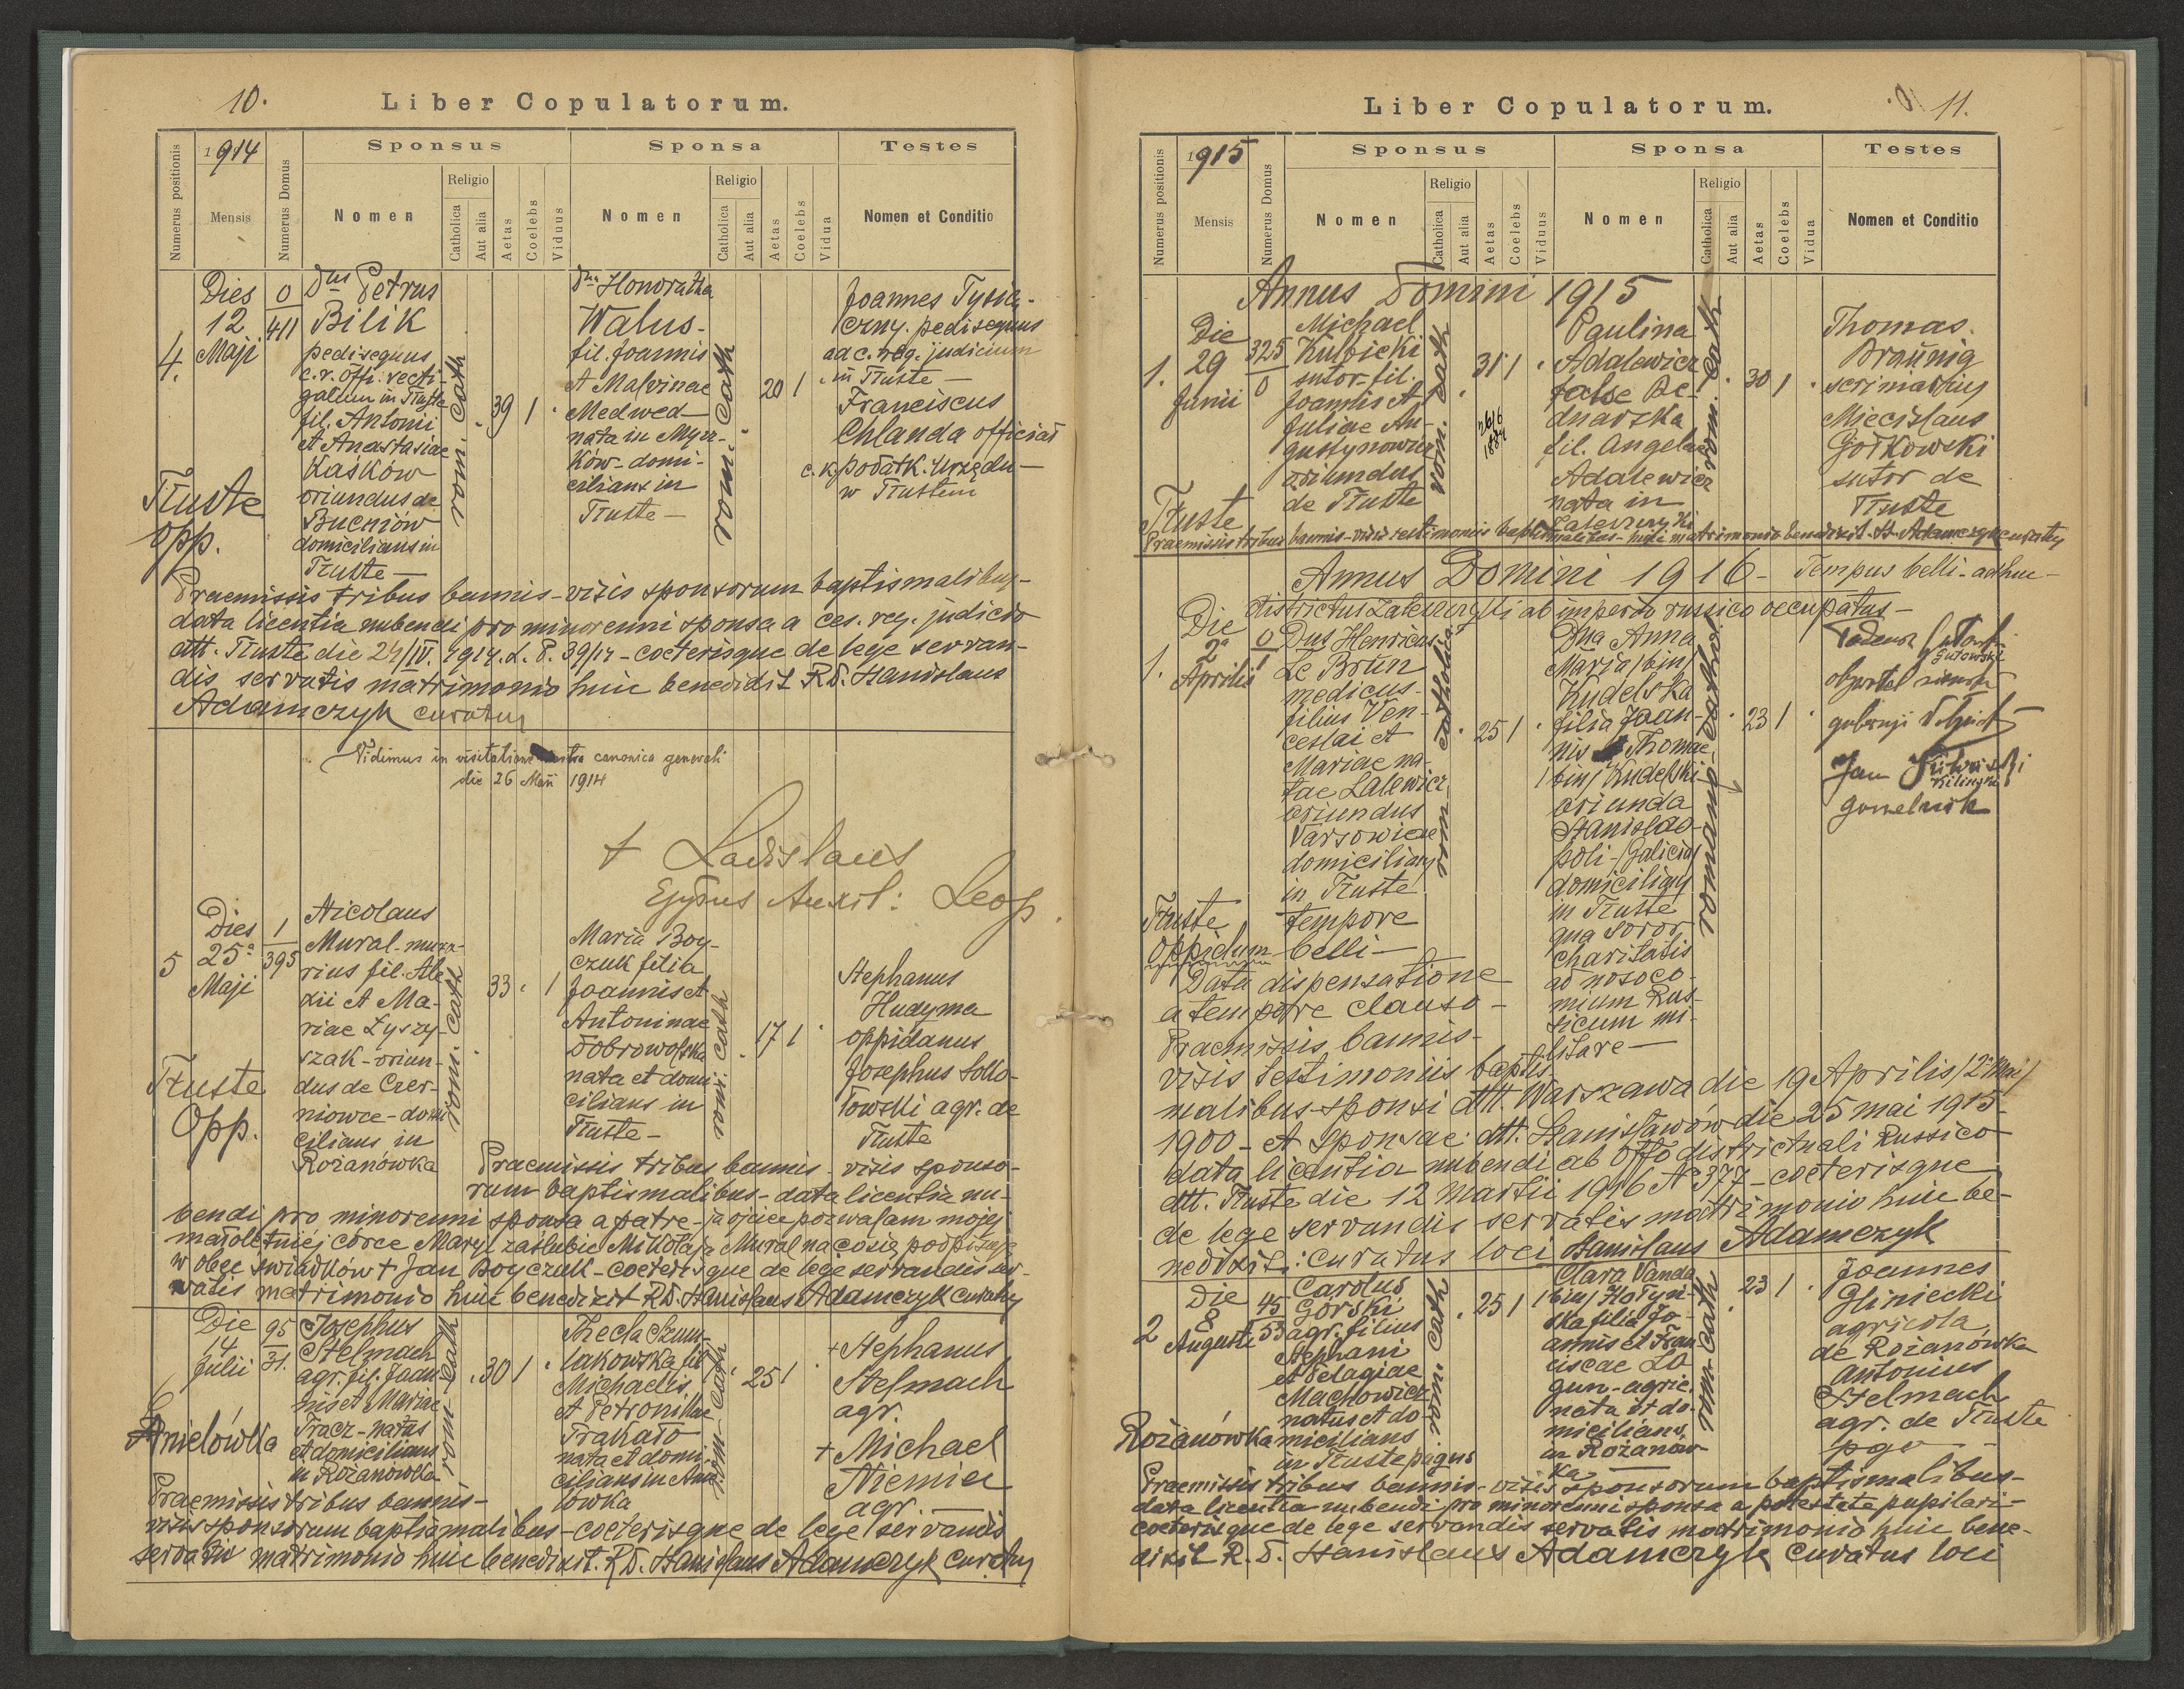 10.
Liber Copulatorum.
Numerus positionis
1914
Mensis
Numerus Domus
Sponsus
Nomen
Religio
Catholica
Aut alia
Aetas
Coelebs
Viduus
Sponsa
Nomen
Religio
Catholica
Aut alia
Aetas
Coelebs
Vidua
Testes
Nomen et Conditio
4.
Dies
12
Maji
0
411
Tłuste
opp.
Dus Petrus
Bilik
pedisequus
c.r. offi. vecti-
galium in Tłuste
fil. Antonii
et Anastasiae
Kaśków
oriundus de
Bucniów
domicilians in
Tłuste —
rom. cath
39 1
Dna Honoratha
Walus-
fil. Joannis
et Malvinae
Medwed
nata in Mysz-
ków - domi-
cilians in
Tłuste —
rom. cath
20 1
Joannes Tysia-
czny. pedisequus
ad c. reg. judicium
in Tłuste —
Franciscus
Chlanda officiał
c. k. podatk. Urzędu —
w Tłustem
Praemissis tribus bannis - visis sponsorum baptismalibus -
data licentia nubendi pro minorenni sponsa a ces. reg. judicio
dtt. Tłuste die 24/IV. 1914. L. P. 39/14 - coeterisque de lege servan-
dis servatis matrimonio huic benedixit R.D. Stanislaus
Adamczyk curatus
Vidimus in visitatione nostra canonica generali
die 26 Maii 1914
† Ladislaus
Eppus Auxil: Leop.
5
Dies
25a
Maji
1
395
Tłuste
Opp.
Nicolaus
Mural - mura-
rius fil. Ale-
xii et Ma-
riae Łyszy-
szak - oriun-
dus de Czer-
niowce - domi
cilians in
Rożanówka
rom. cath
33 1
Maria Boy-
czuk filia
Joannis et
Antoninae
Dobrowolska
nata et domi
cilians in
Tłuste -
rom. cath
17 1
Stephanus
Hudyma
oppidanus
Josephus Soko-
łowski agr. de
Tłuste
Praemissis tribus bannis - visis sponso-
rum baptismalibus - data licentia nu-
bendi pro minorenni sponsa a patre - ja ojciec pozwalam mojej
małoletniej córce Maryi zaślubić Mikołaja Mural na co się podpisuję
w obec świadków + Jan Boyczuk - coeterisque de lege servandis ser-
vatis matrimonio huic benedixit R.D. Stanislaus Adamczyk curatus
Die
14
Julii
95
31.
Anielówka
Josephus
Stelmach
agr. fil. Joan
nis et Mariae
Tracz - natus
et domicilians
in Rożanówka
rom cath
30 1
Thecla Szum-
lakowska fil
Michaelis
et Petronillae
Trakało
nata et domi
cilians in Anie
lówka
rom cath
25 1
+ Stephanus
Stelmach
agr.
+ Michael
Niemiec
agr. —
Praemissis tribus bannis -
visis sponsorum baptismalibus - coeterisque de lege servandis
servatis matrimonio huic benedixit. R.D. Stanislaus Adamczyk curatus
11.
Liber Copulatorum.
Numerus positionis
1915
Mensis
Numerus Domus
Sponsus
Nomen
Religio
Catholica
Aut alia
Aetas
Coelebs
Viduus
Sponsa
Nomen
Religio
Catholica
Aut alia
Aetas
Coelebs
Vidua
Testes
Nomen et Conditio
Annus Domini 1915
1.
Die
29
Junii
325
0
Tłuste
Michael
Kulbicki
sutor - fil.
Joannis et
Juliae Au-
gustynowicz
oriundus
de Tłuste
rom. cath
31 1
26/6
1884
Paulina
Adalewicz
false Be-
dnarska
fil. Angelae
Adalewicz
nata in
Zaleszczyki
rom. cath
30 1
Thomas
Braunig
scriniarius
Miecislaus
Gołkowski
sutor de
Tłuste
Praemissis tribus bannis - visis testimoniis baptismalibus - huic matrimonio benedixit St. Adamczyk curatus
Annus Domini 1916 - Tempus belli - adhuc -
districtus Zaleszczyki ab imperio russico occupatus -
1.
Die
2a
Aprilis
0
1
Tłuste
oppidum
Dus Henricus
Le Brün
medicus -
filius Ven-
ceslai et
Mariae na-
tae Lalewicz
oriundus
Varsowiae
domicilians
in Tłuste
tempore
belli —
rom catholica
25 1
Dna Anna
Maria /bin/
Kudelska
filia Joan-
nis Thomae
/bin/ Kudelski
oriunda
Stanislao-
poli - /Galicia/
domicilians
in Tłuste
qua soror
charitatis
ad nosoco-
mium Rus-
sicum mi-
litare —
romano catholica
23 1
Gutowski
Jan
Kiliński
Data dispensatione
a tempore clauso -
Praemissis bannis -
visis testimoniis baptis
malibus sponsi dtt. Warszawa die 19 Aprilis /2 Mai/
1900 - et sponsae: dtt. Stanisławów die 25 mai 1915 -
data licentia nubendi ab offo districtuali Russico
dtt. Tłuste die 12 Martii 1916 No 377 - coeterisque
de lege servandis servatis matrimonio huic be-
nedixit: curatus loci Stanislaus Adamczyk
2
Die
8
Augusti
45
53
Rożanówka
Carolus
Gorski
agr. filius
Stephani
et Pelagiae
Machowicz
natus et do-
micilians
in Tłuste pagus
rom. cath
25 1
Clara Vanda
/bin/ Hołyń-
ska filia Jo-
annis et Fran
ciscae Lo
gun - agric.
nata et do-
micilians
in Rożanów-
ka
rom cath
23 1
Joannes
Gliniecki
agricola
de Rożanówka
Antonius
Stelmach
agr. de Tłuste
pgo —
Praemissis tribus bannis - visis sponsorum baptismalibus -
data licentia nubendi pro minorenni sponsa a potestate pupilari -
coeterisque de lege servandis servatis matrimonio huic bene-
dixit R. D. Stanislaus Adamczyk curatus loci